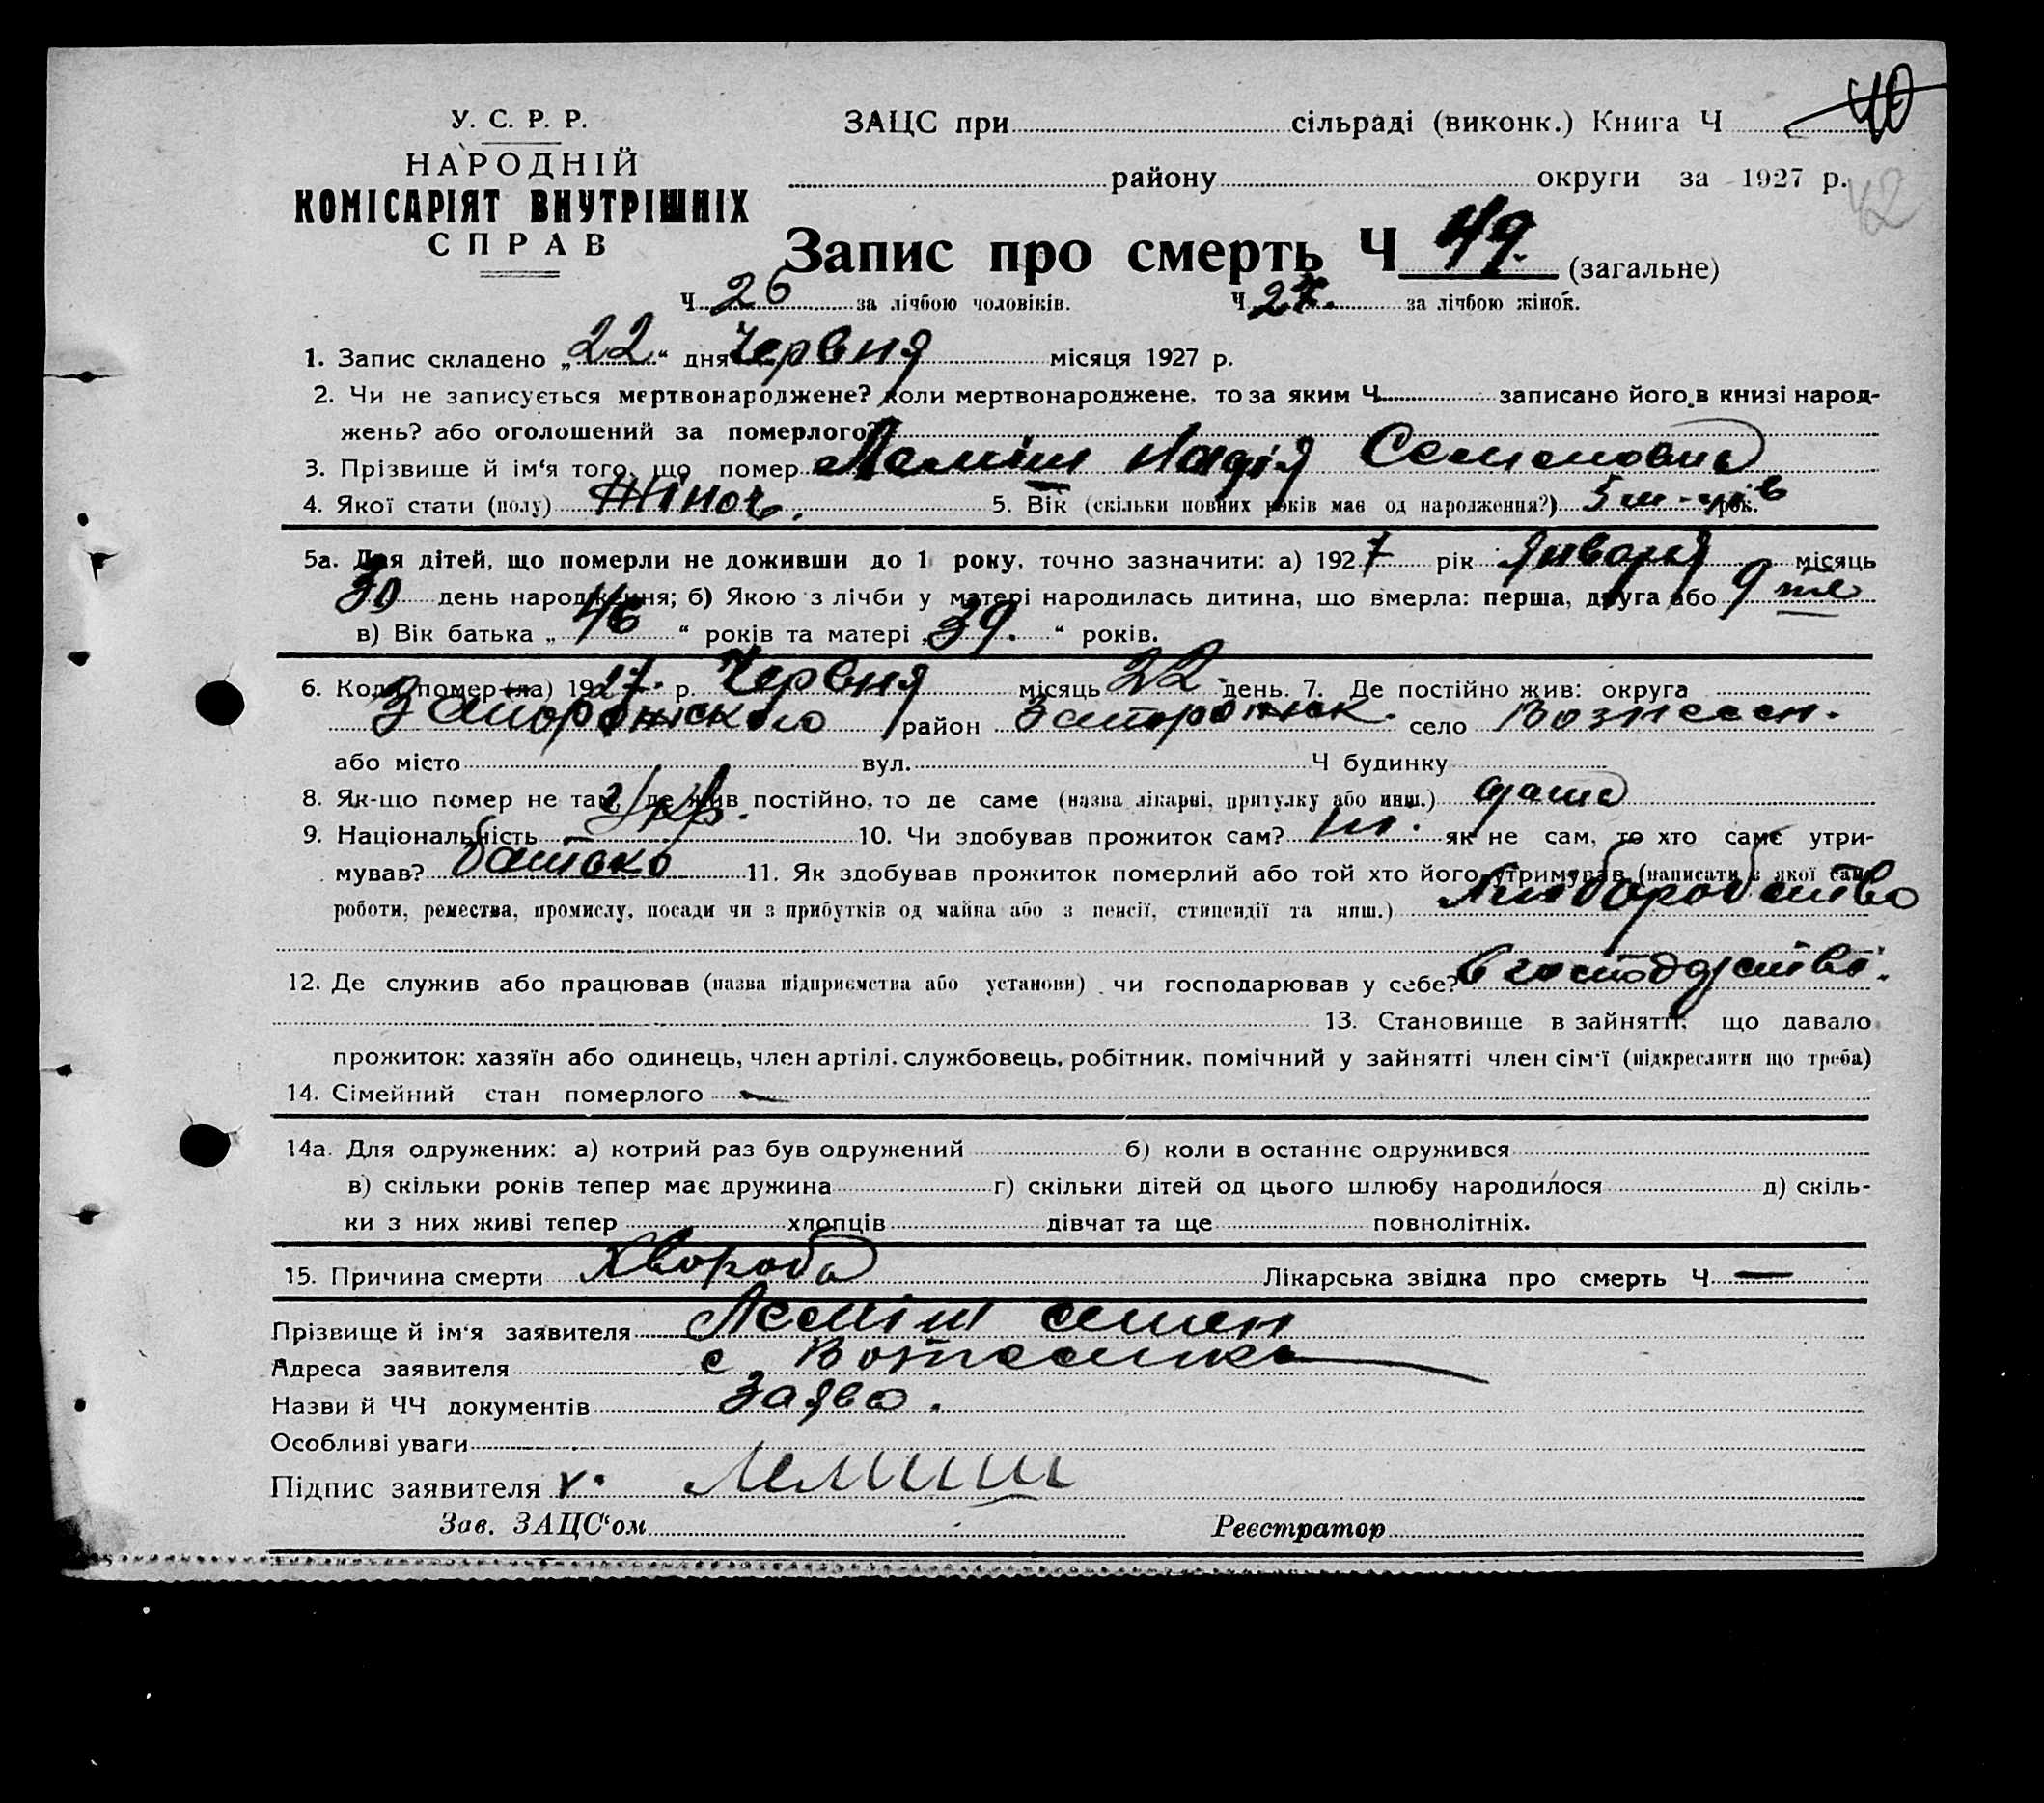 40
У. С. Р. Р.
НАРОДНІЙ
КОМІСАРІЯТ ВНУТРІШНІХ
СПРАВ
ЗАЦС при сільраді (виконк.) Книга Ч
району округи за 1927 р.
42
Запис про смерть Ч 49. (загальне)
Ч 26 за лічбою чоловіків. Ч за лічбою жінок.
1. Запис складено „22“ дня Червня місяця 1927 р.
2. Чи не записується мертвонароджене? Коли мертвонароджене, то за яким Ч записано його в книзі народ-
жень? або оголошений за померлого?
3. Прізвище й ім‘я того, що помер Леміш Надія Семеновна
4. Якої стати (полу) Жіноч. 5. Вік (скільки повних років має од народження?) 5 рок.
5а. Для дітей, що померли не доживши до 1 року, точно зазначити: а) 1927 рік Января місяць
30 день народження; б) Якою з лічби у матері народилась дитина, що вмерла: перша, друга або 9
в) Вік батька „46“ років та матері „39.“ років.
6. Коли помер(ла) 1927. р. Червня місяць 22 день. 7. Де постійно жив: округа
Запоріжского район Запоріжск. село Вознесен.
або місто вул. Ч будинку
8. Як-що помер не там, де жив постійно, то де саме (назва лікарні, притулку або инш.) дома
9. Національність Укр. 10. Чи здобував прожиток сам? ні. як не сам, то хто саме утри-
мував? батько 11. Як здобував прожиток померлий або той хто його утримував (написати з якої саме
роботи, ремества, промислу, посади чи з прибутків од майна або з пенсії, стипендії та инш.) Хліборобство
12. Де служив або працював (назва підприємства або установи) чи господарював у себе? в господарстві.
13. Становище в зайнятті, що давало
прожиток: хазяїн або одинець, член артілі, службовець, робітник, помічний у зайнятті член сім‘ї (підкреслити що треба)
14. Сімейний стан померлого —
14а. Для одружених: а) котрий раз був одружений б) коли в останнє одружився
в) скільки років тепер має дружина г) скільки дітей од цього шлюбу народилося д) скіль-
ки з них живі тепер хлопців дівчат та ще повнолітніх.
15. Причина смерти Хвороба Лікарська звідка про смерть Ч —
Прізвище й ім‘я заявителя Леміш Семен
Адреса заявителя с. Вознесенка
Назви й ЧЧ документів Заява.
Особливі уваги
Підпис заявителя Лемиш
Зав. ЗАЦС‘ом Реєстратор